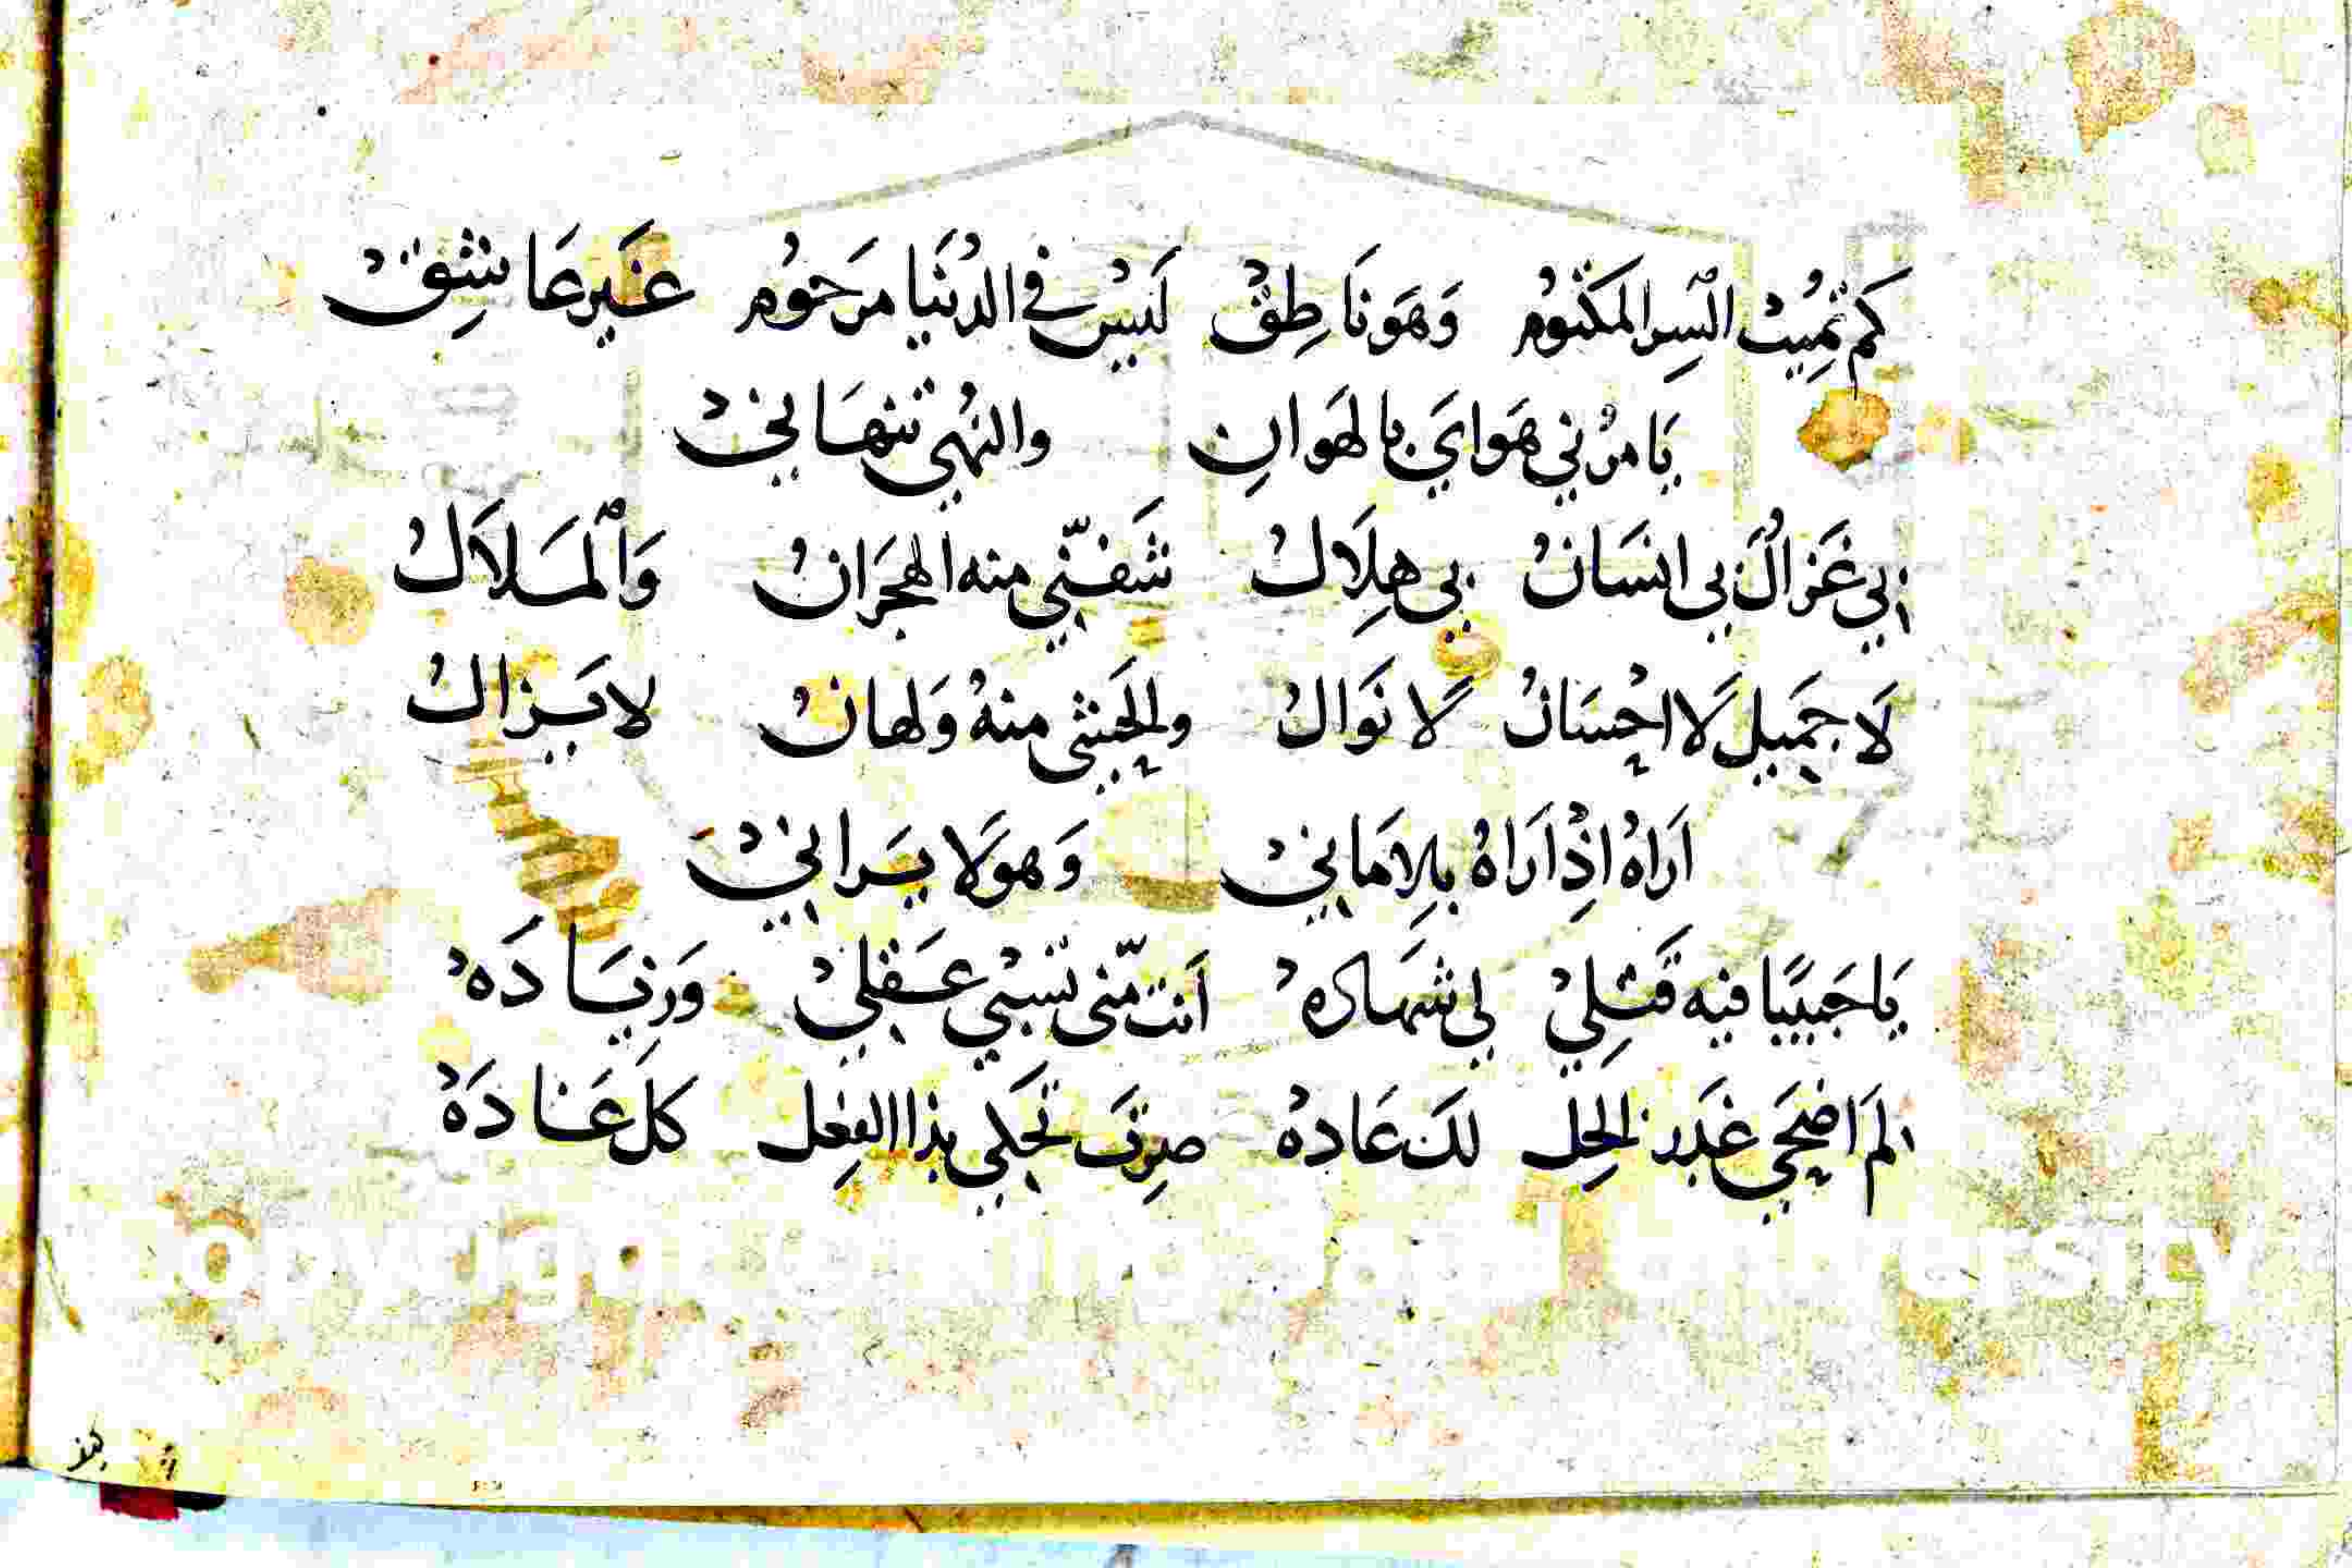 كم تُمِيتْ السِر المكتُومْ وَهَو نَاطِقْ لَيسْ في الدُنَيا مرَحوُم غَير عَاشِقْ
يَا مرْني هَوايَ بالهَوانِ والنهُي تنهَاني
بي غَزالٌ بي انسَانْ بي هِلَالْ شَفّني منه الهجَرانْ وَالمَلاَلْ
لَا جمَيل لَا احْسَانْ لَا نَوَالْ والحَشى منهُ وَلهانْ لا يَزالْ
اَراهُ اذْ اَراهُ بالِاَماني وَهو لَا يَراني
يَا حَبيبًا فيه قَتلِي لي شهَادَه اَنت منّى تسْبي عَقلي وَزيَادَه
لَم اضحَي غَدر الخِل لكَ عَادهْ صِرتَ تحَكي بذا الفِعل كل غَادَهْ